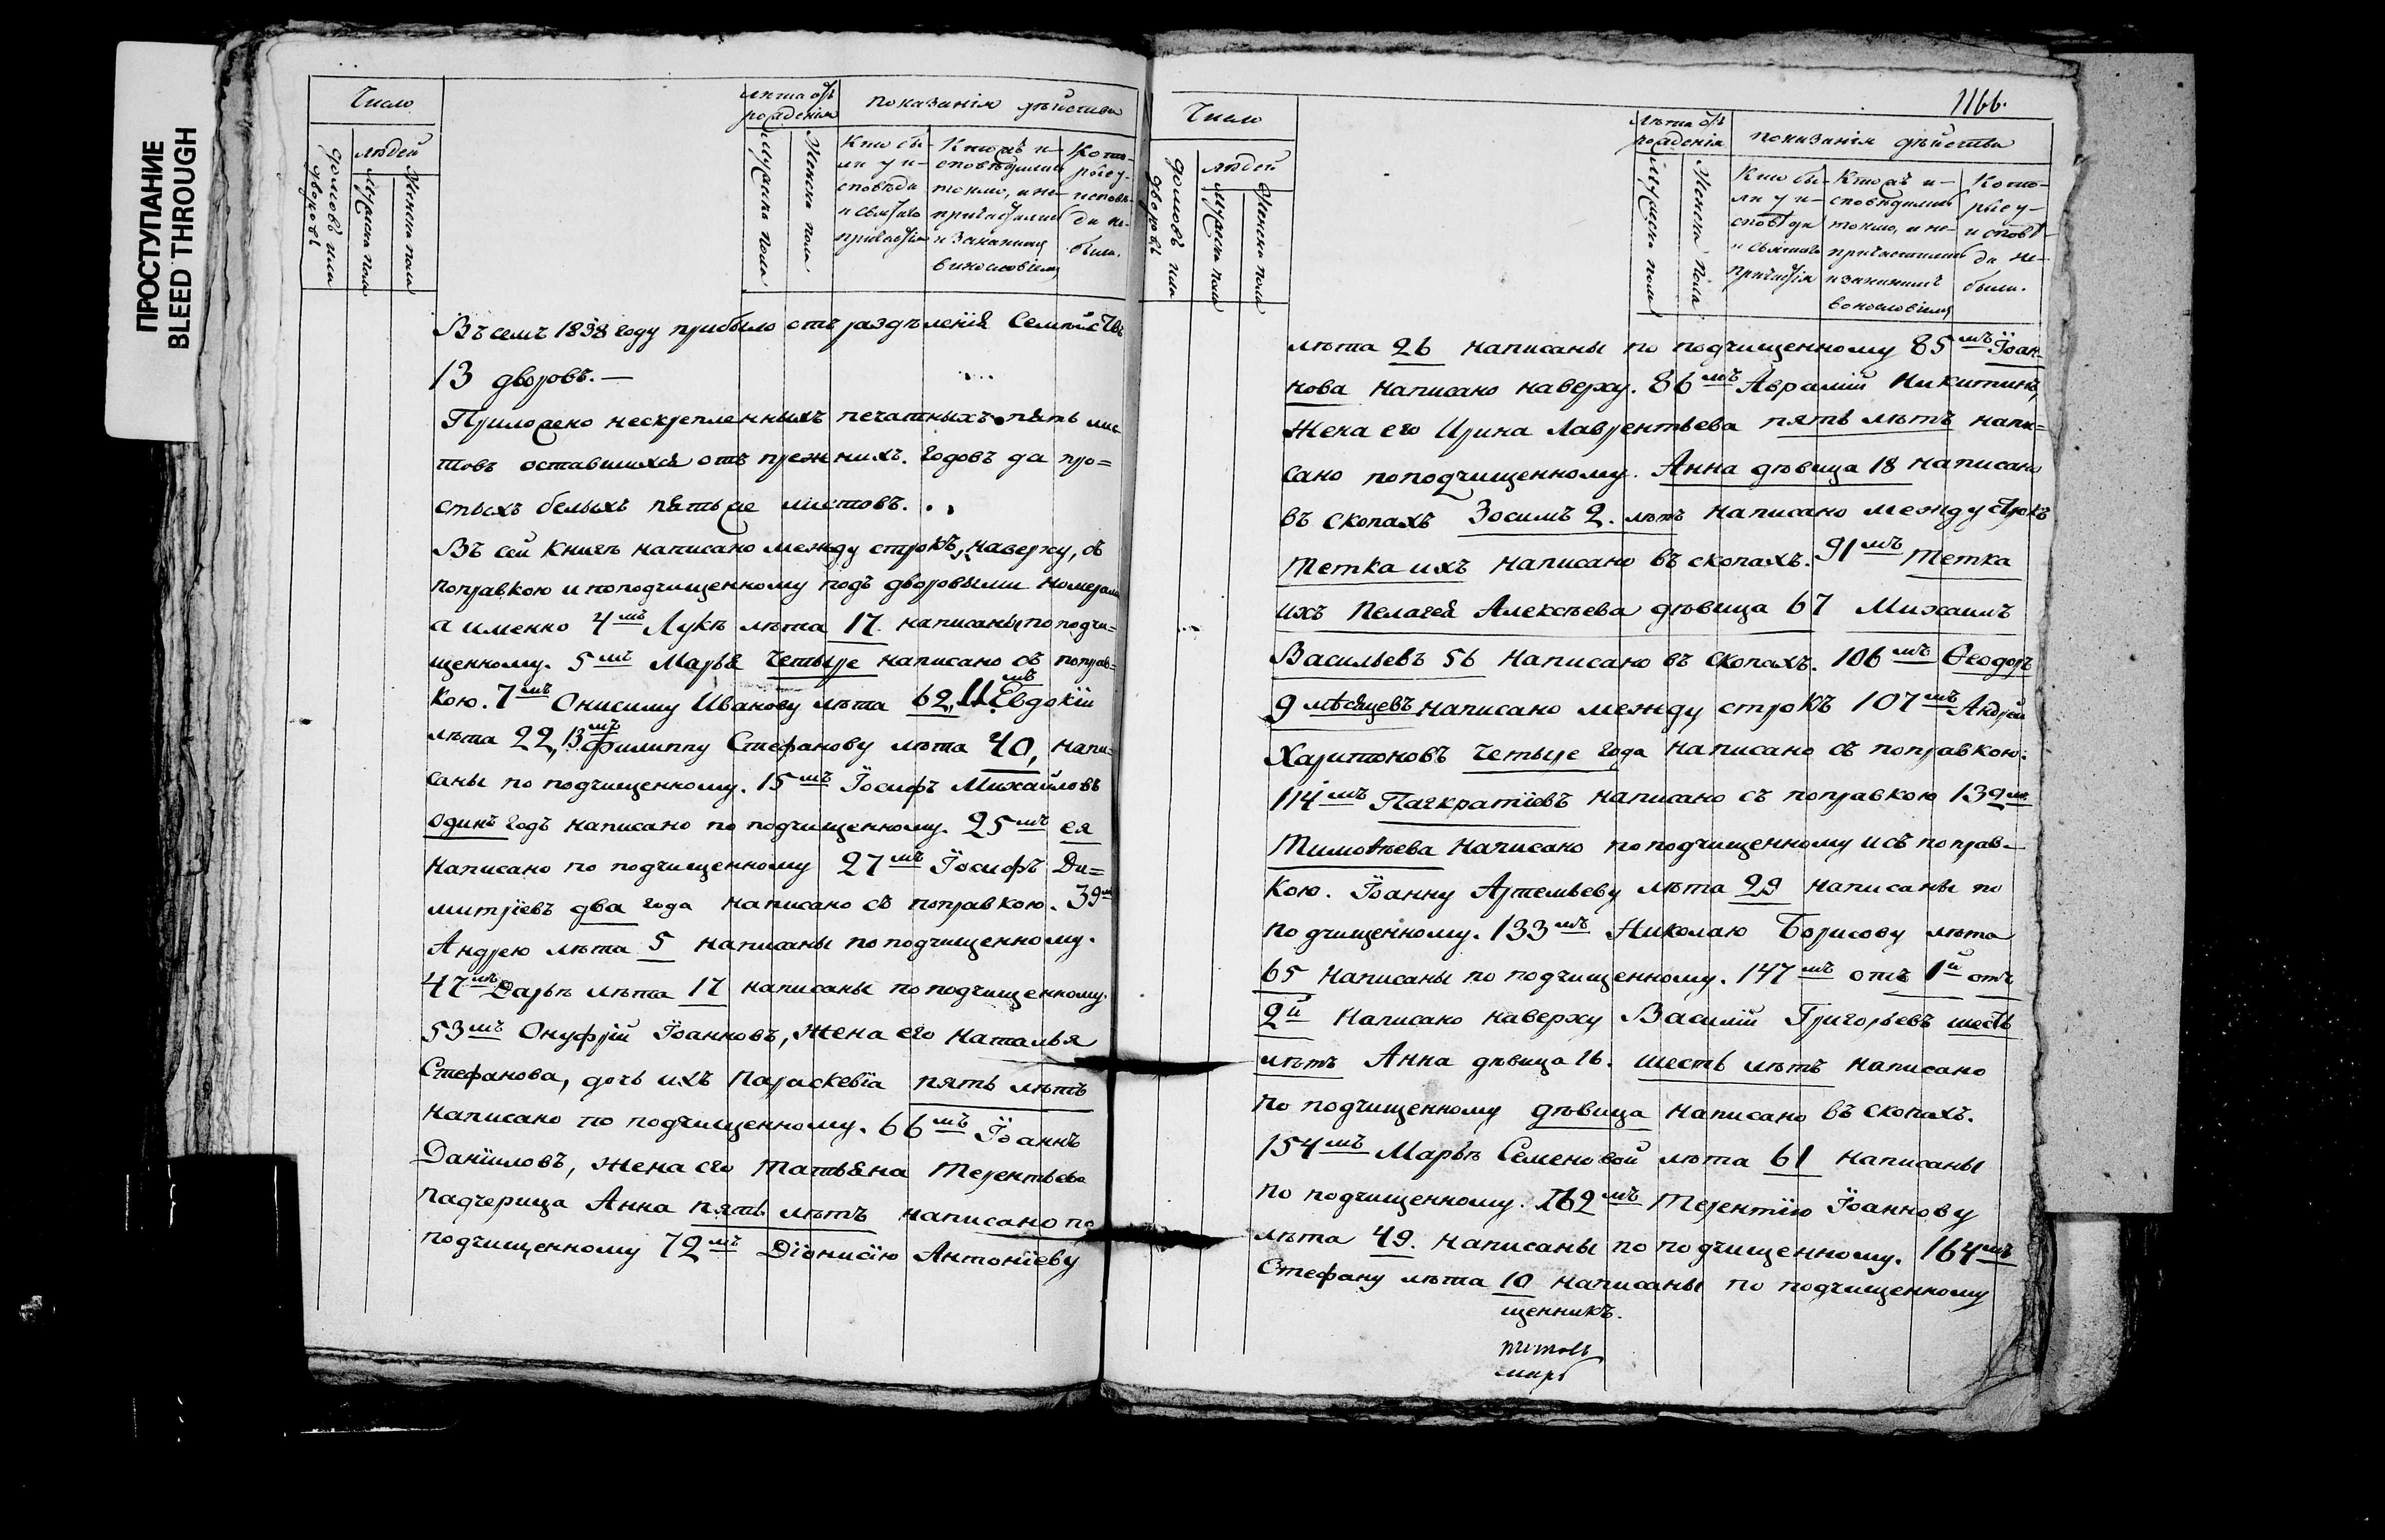 ПРОСТУПАНИЕ
BLEED THROUGH
Число
лѣта отъ
рожденія
показанія дѣйства
домовъ или
дворовъ
людей
Мужеска пола
Женска пола
Мужеска пола
Женска пола
Кто бы-
ли у и-
сповѣди
и святаго
причастія
Кто жъ и-
сповѣдался
токмо, и не-
причастился
и за каким
винословіемъ
Кото-
рые у-
исповѣ-
ди не-
были.
Въ семъ 1838 году прибыло отъ раздѣленія Семействъ
13 дворовъ.—
Приложено нескрепленныхъ печатныхъ пять лис
товъ оставшихся отъ прежнихъ годовъ да про=
стыхъ белыхъ пять же листовъ.
Въ сей книгѣ написано между строкъ, наверху, съ
поправкою и по подчищенному подъ дворовыми номерами
а именно 4мъ Лукѣ лѣта 17. написаны по подчи=
щенному. 5мъ Марья четыре написано съ поправ=
кою. 7мъ Онисиму Иванову лѣта 62, 11мъ Евдокіи
лѣта 22, 13мъ Филиппу Стефанову лѣта 40, напи=
саны по подчищенному. 15мъ Іосифъ Михайловъ
одинъ годъ написано по подчищенному. 25мъ ея
написано по подчищенному 27мъ Іосифъ Ди=
митріевъ два года написано съ поправкою. 39мъ
Андрею лѣта 5 написаны по подчищенному.
47мъ Дарьѣ лѣта 17 написаны по подчищенному.
53мъ Онуфрій Іоанновъ, жена его Наталья
Стефанова, дочь ихъ Параскевіа пять лѣтъ
написано по подчищенному. 66мъ Іоаннъ
Даніиловъ, жена его Татьяна Терентьева
падчерица Анна пять лѣтъ написано по
подчищенному 72мъ Діонисію Антоніеву
1166.
Число
Лѣта отъ
рожденія
показанія дѣйства
домовъ или
дворовъ
людей
Мужеска пола
Женска пола
Мужеска пола
Женска пола
Кто бы-
ли у и-
сповѣди
и святаго
причастія
Кто жъ и-
сповѣдался
токмо, и не-
причастился
и за какимъ
винословіемъ
Кото-
рые у-
исповѣ-
ди не-
были.
лѣта 26 написаны по подчищенному 85мъ Іоан=
нова написано наверху. 86мъ Аврамій Никитинъ,
жена его Ирина Лаврентьева пять лѣтъ напи=
сано по подчищенному. Анна дѣвица 18 написано
въ скопахъ Зосимъ 2. лѣтъ написано между строкъ
тетка ихъ написано въ скопахъ. 91мъ тетка
ихъ Пелагея Алексѣева дѣвица 67 Михаилъ
Васильевъ 56 написано въ скопахъ. 106мъ Ѳеодоръ
9 мѣсяцевъ написано между строкъ 107мъ Андрей
Харитоновъ четыре года написано съ поправкою.
114мъ Панкратіевъ написано съ поправкою 132мъ
Тимоѳѣева написано по подчищенному и съ поправ-
кою. Іоанну Артемьеву лѣта 29 написаны по
подчищенному. 133мъ Николаю Борисову лѣта
65 написаны по подчищенному. 147мъ отъ 1й отъ
2й написано наверху Василій Григорьевъ шесть
лѣтъ Анна дѣвица 16. шесть лѣтъ написано
по подчищенному дѣвица написано въ скопахъ.
154мъ Марьѣ Семеновой лѣта 61 написаны
по подчищенному. 162мъ Терентію Іоаннову
лѣта 49. написаны по подчищенному. 164мъ
Стефану лѣта 10 написаны по подчищенному
щенникъ.